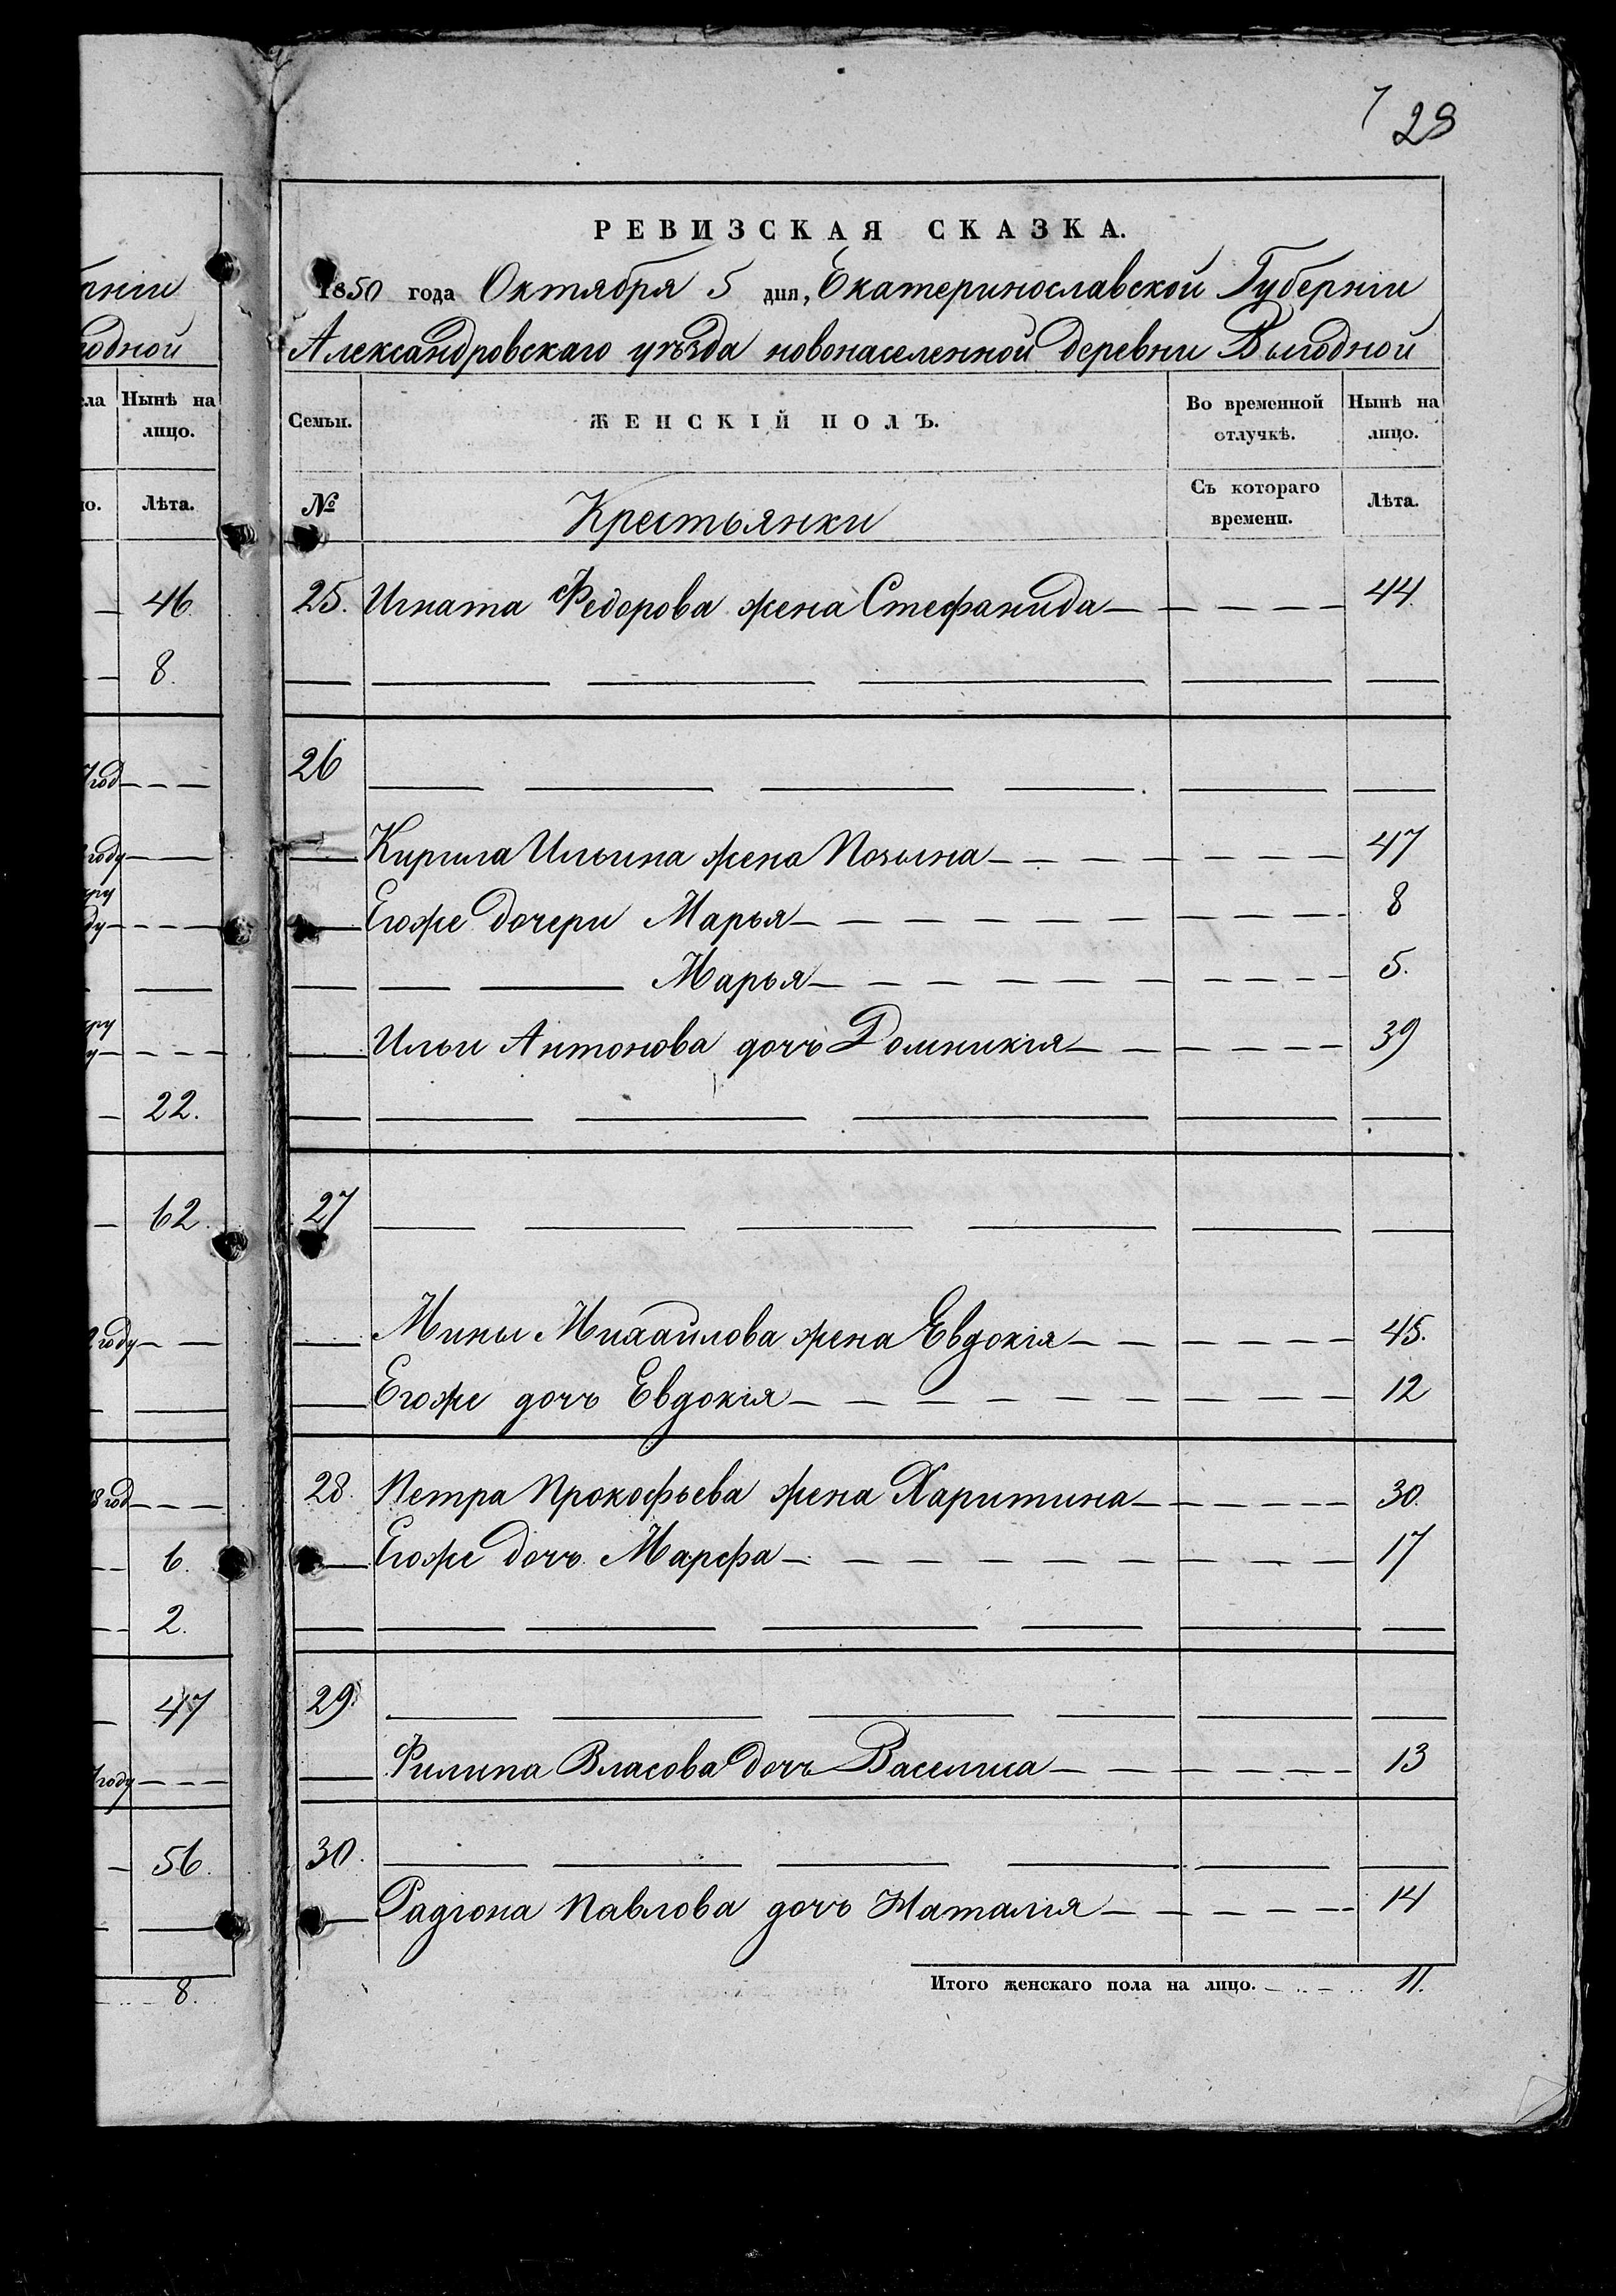 7 28
РЕВИЗСКАЯ СКАЗКА.
1850 года Октября 5 дня, Екатеринославской Губерніи
Александровскаго уѣзда новонаселенной деревни Выгодной
Семьи. ЖЕНСКІЙ ПОЛЪ. Во временной отлучкѣ. Нынѣ на лицо.
№ Крестьянки Съ котораго времени. Лѣта.
25. Игната Федорова жена Стефанида 44.
26
Кирила Ильина жена 47
Егоже дочери Марья 8
Марья 5.
Ильи Антонова дочь Домникія 39
27
Мины Михайлова жена Евдокія 45.
Егоже дочь Евдокія 12
28. Петра Прокофьева жена Харитина 30.
Егоже дочь Марфа 17
29.
Филипа Власова дочь Васелиса 13
30.
Радіона Павлова дочь Наталія 14
Итого женскаго пола на лицо. 11.
Нынѣ на лицо.
Лѣта.
46.
8.
22.
62.
6.
2.
47
56.
8.